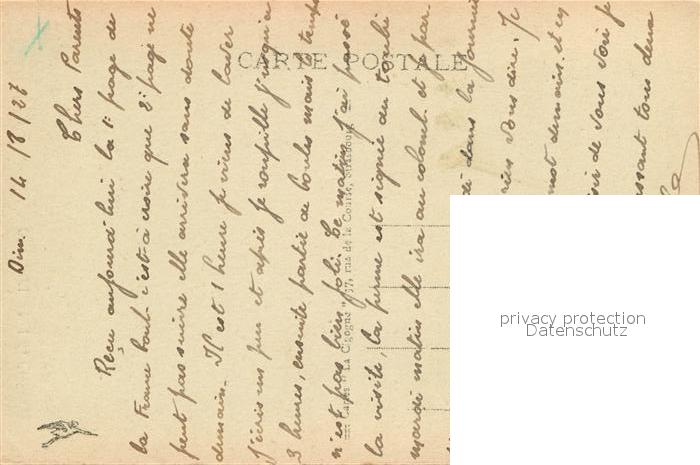 CARTE POSTALE
Dim. 14/8/27
Chers Parents
Reçu aujourd'hui la 1e page de
la France c'est à croire que 2e page ne
peut pas suivre elle arrivera sans doute
demain. Il est 1 heure je viens de laver
J'écris un peu et après je roupille jusqu'à
3 heures, ensuite partie de boules mais le temps
n'est pas bien joli. Ce matin j'ai passé
la visite, la perme est signée du toubib
mardi matin elle ira au colonel et par-
dans la journée
rien vous dire. J
mot demain. et en
de vous voir je
tous deux
Cartes "La Cigogne" 37, rue de la Course, Strasbourg
privacy protection
Datenschutz